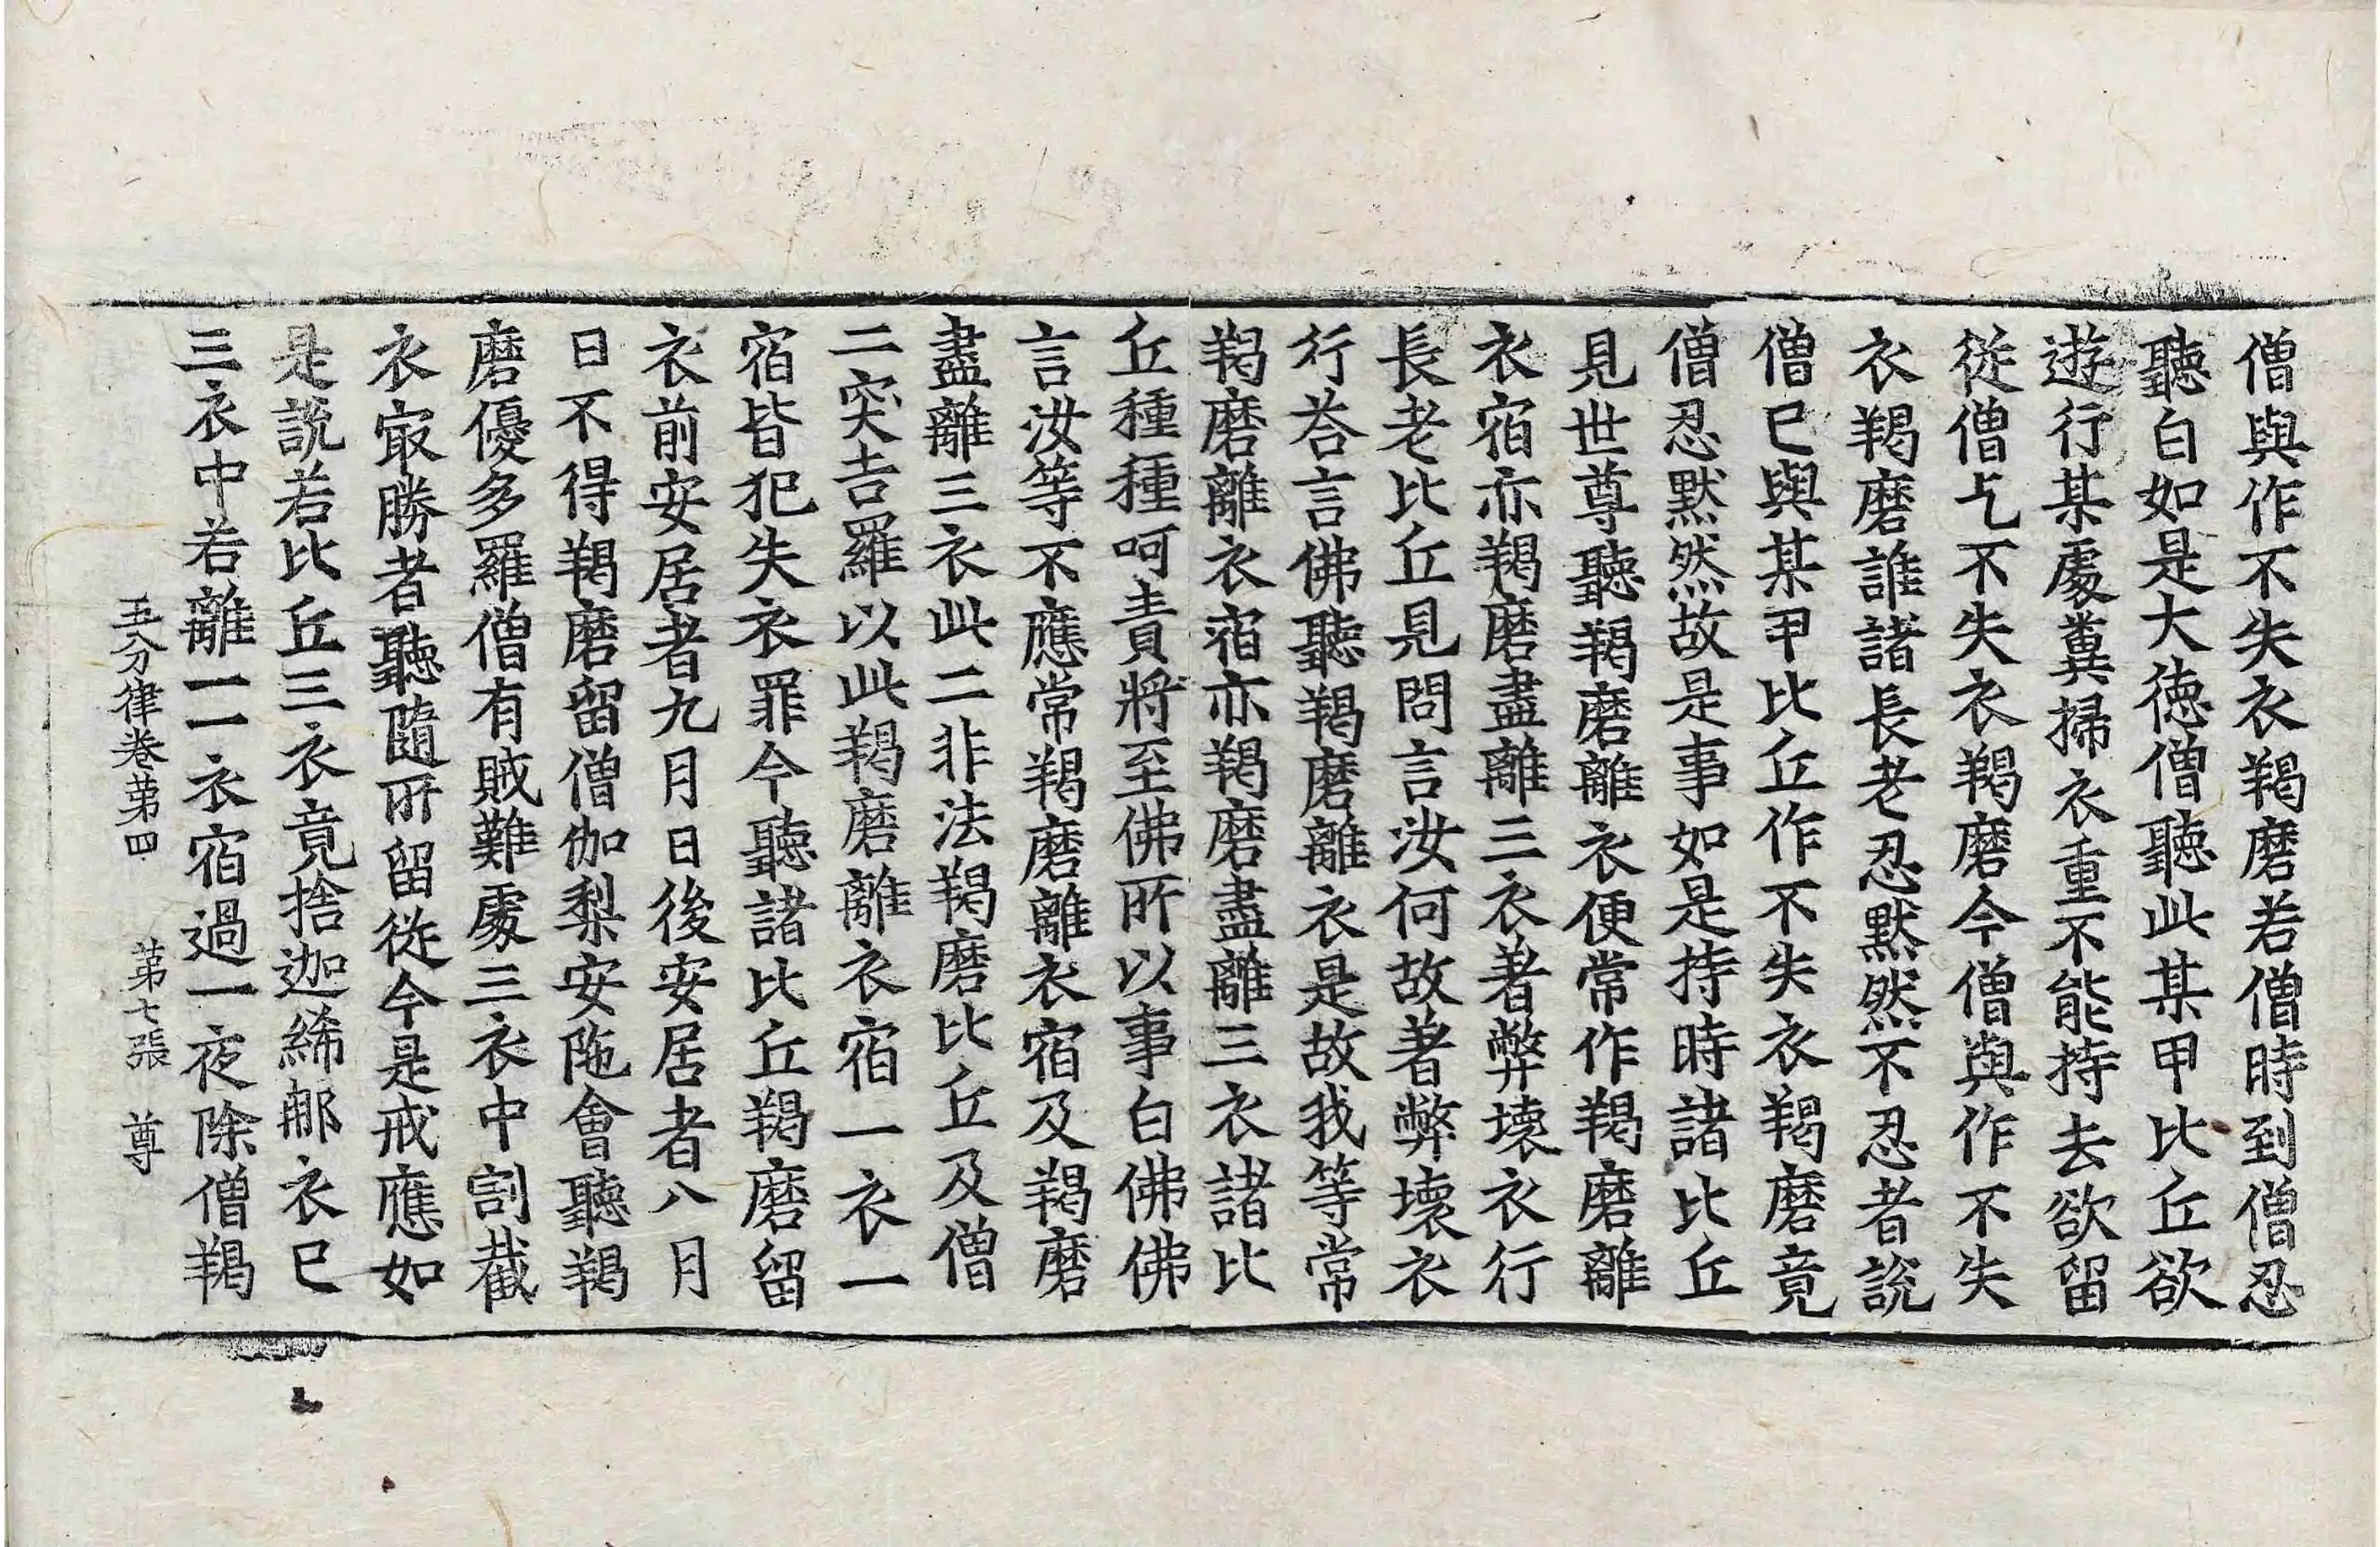 僧與作不失衣羯磨若僧時到僧忍
聽白如是大徳僧聽此某甲比丘欲
遊行某處糞掃衣重不能持去欲留
從僧乞不失衣羯磨今僧與作不失
衣羯磨誰諸長老忍默然不忍者說
僧已與某甲比丘作不失衣羯磨竟
僧忍默然故是事如是持時諸比丘
見世尊聽羯磨離衣便常作羯磨離
衣宿亦羯磨盡離三衣著弊壞衣行
長老比丘見問言汝何故著弊壞衣
行荅言佛聽羯磨離衣是故我等常
羯磨離衣宿亦羯磨盡離三衣諸比
丘種種呵責將至佛所以事白佛佛
言汝等不應常羯磨離衣宿及羯磨
盡離三衣此二非法羯磨比丘及僧
二突吉羅以此羯磨離衣宿一衣一
宿皆犯失衣罪今聽諸比丘羯磨留
衣前安居者九月日後安居者八月
日不得羯磨留僧伽梨安陁會聽羯
磨優多羅僧有賊難處三衣中割截
衣㝡勝者聽隨所留從今是戒應如
是說若比丘三衣竟捨迦絺那衣已
三衣中若離一一衣宿過一夜除僧羯
五分律卷苐四 苐七張 尊